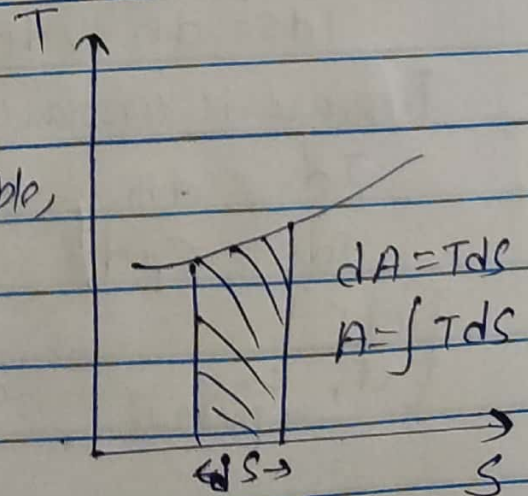 T
dA = Tds
A = ∫ Tds
ds
S